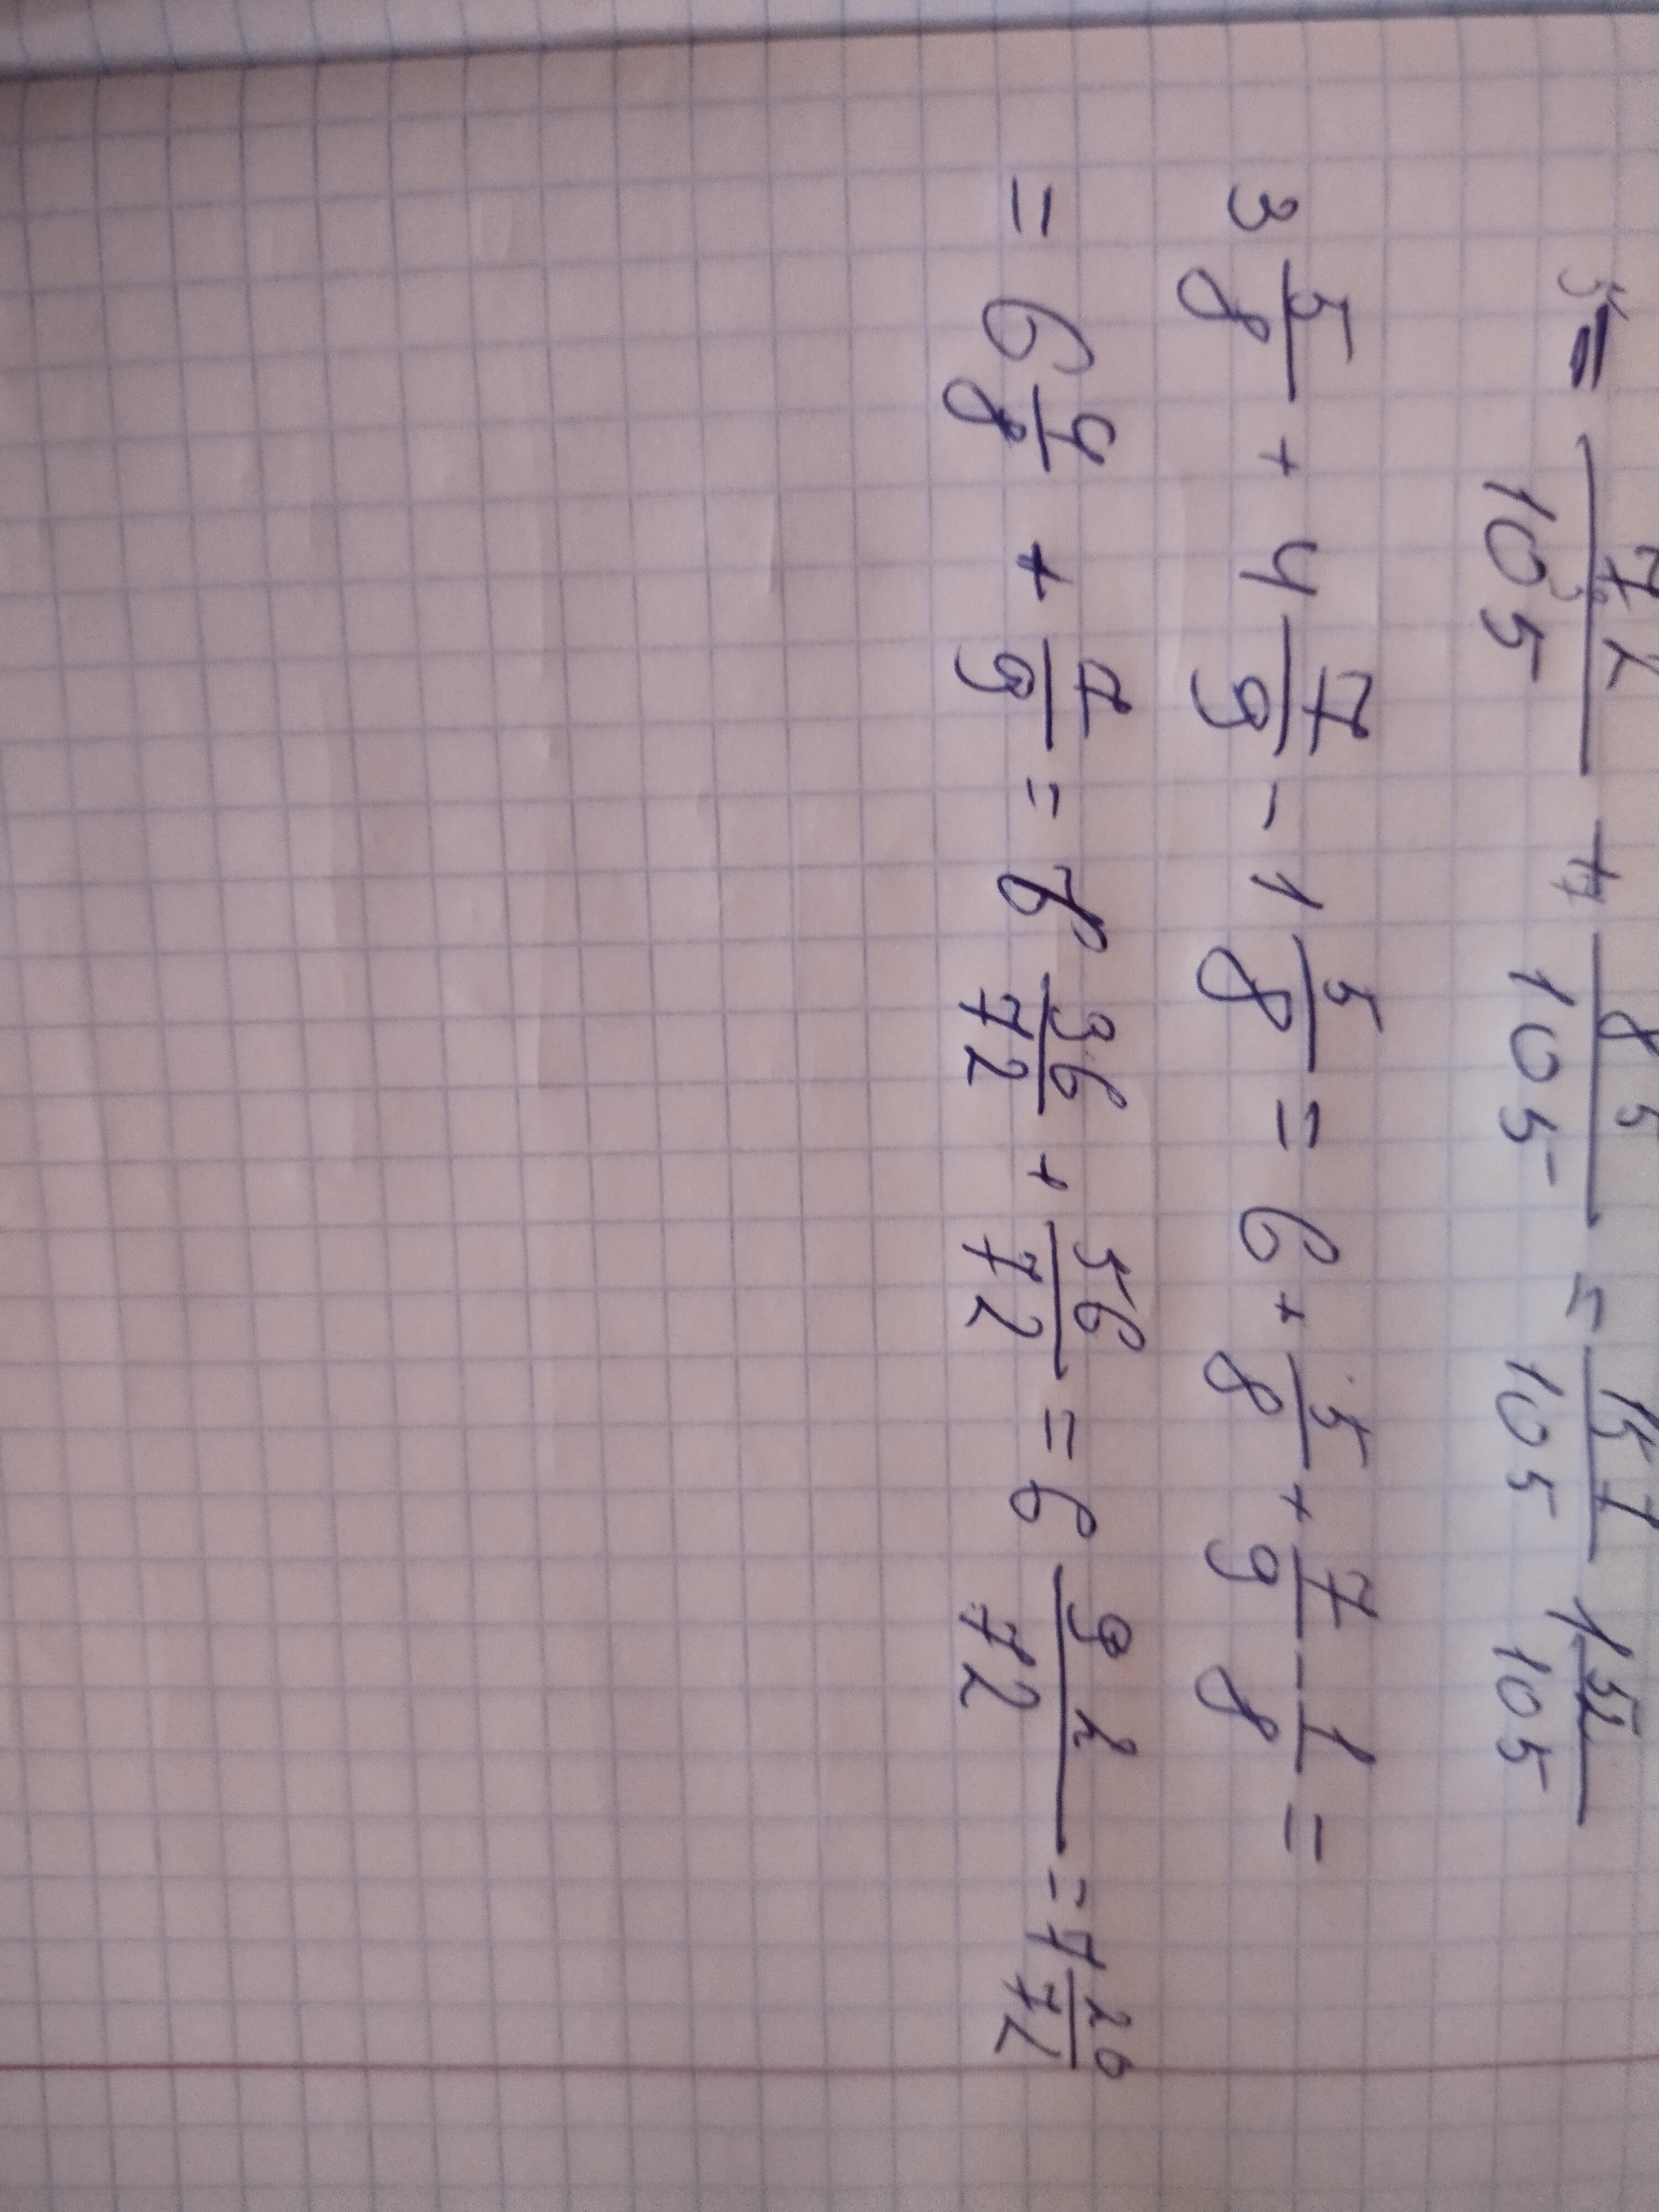 = 72/105 + 85/105 = 157/105 1 52/105
3 5/8 + 4 7/9 - 1 5/8 = 6 + 5/8 + 7/9 - 1/8 =
= 6 4/8 + 7/9 = 6 36/72 + 56/72 = 6 92/72 = 7 20/72